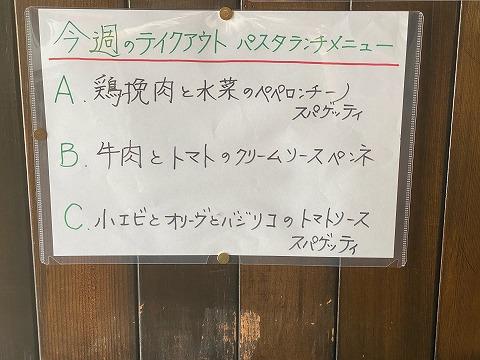 今週のテイクアウト パスタランチメニュー
A. 鶏挽肉と水菜のペペロンチーノ
スパゲッティ
B. 牛肉とトマトのクリームソースペンネ
C. 小エビとオリーヴとバジリコのトマトソース
スパゲッティ